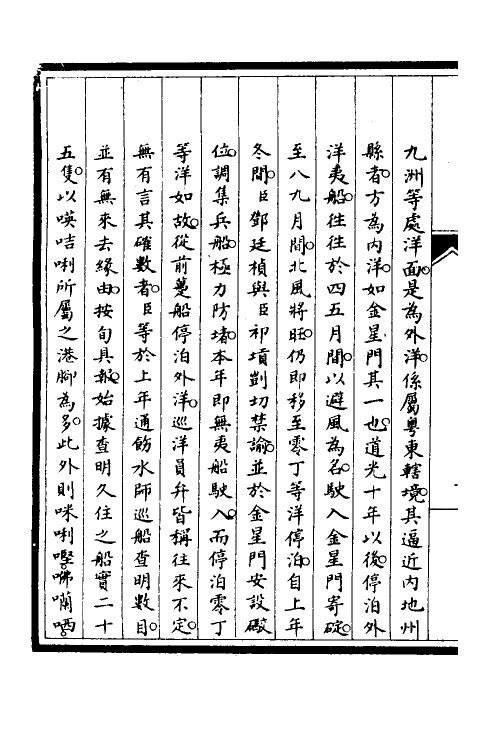 九洲等處洋面。是為外洋。係屬粵東轄境。其逼近內地州
縣者。方為內洋。如金星門其一也。道光十年以後。停泊外
洋夷船。往往於四五月間。以避風為名。駛入金星門寄碇。
至八九月間。北風將旺。仍即移至零丁等洋停泊。自上年
冬間。臣鄧廷楨與臣祁𡎴剴切禁諭。並於金星門安設礮
位。調集兵船。極力防堵。本年即無夷船駛入。而停泊零丁
等洋如故。從前躉船停泊外洋。巡洋員弁皆稱往來不定。
無有言其確數者。臣等於上年通飭水師巡船查明數目。
並有無來去緣由。按旬具報。始據查明久住之船實二十
五隻。以𠸄咭唎所屬之港腳為多。此外則咪唎㗨。㗰囒哂。